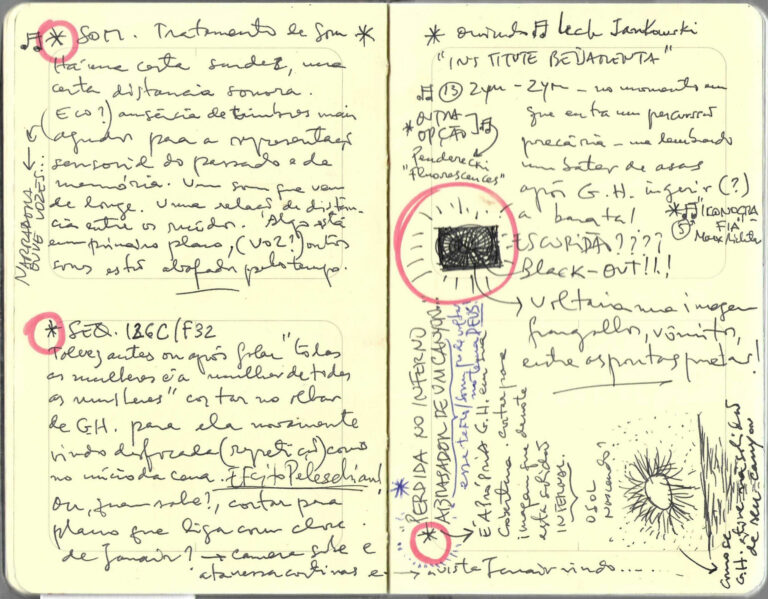 * SOM. Tratamento de Som *
Há uma certa surdez, uma
certa distância sonora.
(Eco?) ausência de timbres mais
agudos para a representaçã
sensorial do passado e de
memória. Um som que vem
de longe. Uma relaçã de distân-
cia entre os ruídos. Algo está
em primeiro plano, (voz?) outros
sons estã abafados pelo tempo.
NARRADORA
OUVE VOZES...
* SEQ. 126C/F32
Talvez antes ou após falar "todas
as mulheres é a mulher de todas
as mulheres" cortar no olhar
de GH. para ela novamente
vindo desfocada (repetiçã) como
no início da cena. Efeito Peleschian!
Ou, quem sabe?, cortar para
plano que liga com close
de Janair? → câmera sobe e
atravessa cortinas e →
* ouvindo Lech Jankowski
"INSTITUTE BENJAMENTA"
(13) 2ym - 2ym - no momento em
que entra um percussã
precária - me lembrando
um bater de asas
após G.H. ingerir (?)
a barata!
* OUTRA
OPÇÃO
Penderecki
"Fluorescences"
* "ICONOGRA
FIA"
5
ESCURIDÃ????
BLACK-OUT!!!
→ Voltaria uma imagem
frangalhos, vômito,
entre as pontas pretas!
* PERDIDA NO INFERNO
ABRASADOR DE UM CANYON...
esse texto
→ E A PRÓPRIA G.H. em
cobertura. cortar para
imagem que denote
esta solidã
INFERNAL.
O SOL
NASCENDO?
como se
G.H. estivesse na solidã
de seu canyon
→ vista Janair vindo....